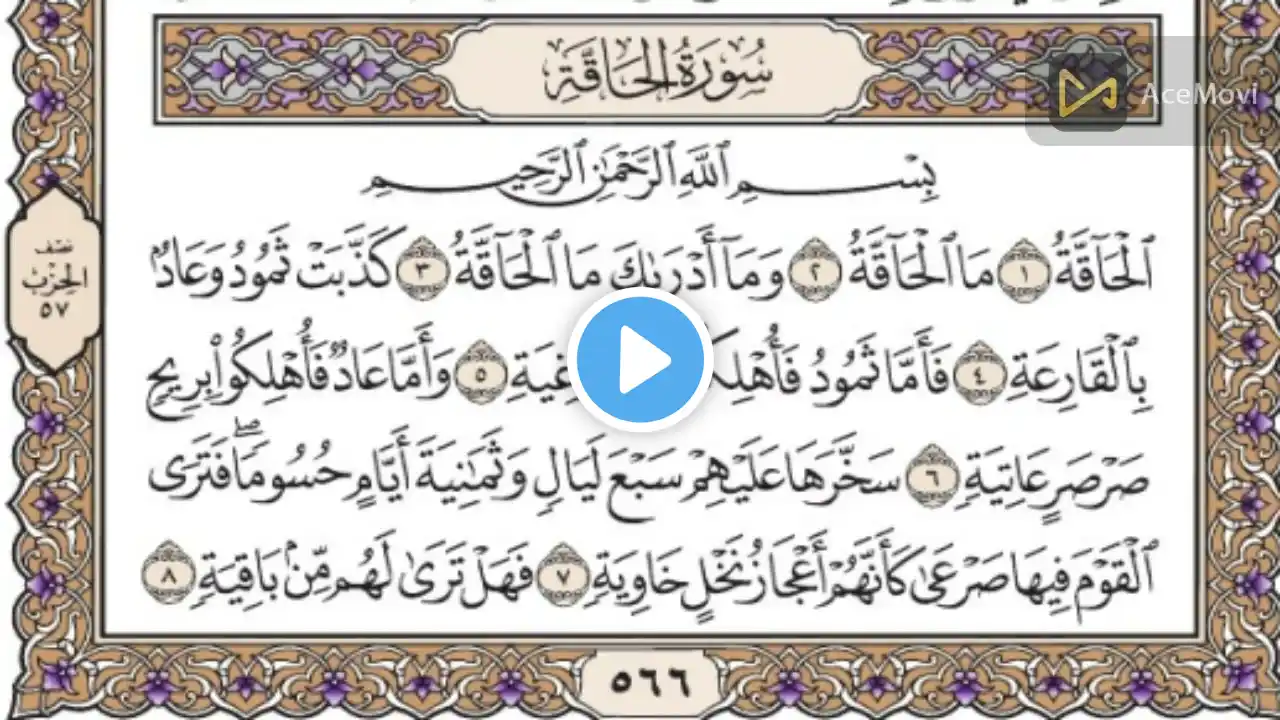 سُورَةُ الحَاقَّةِ
AceMovi
بِسْمِ ٱللَّهِ ٱلرَّحْمَٰنِ ٱلرَّحِيمِ
ٱلْحَآقَّةُ ١ مَا ٱلْحَآقَّةُ ٢ وَمَآ أَدْرَىٰكَ مَا ٱلْحَآقَّةُ ٣ كَذَّبَتْ ثَمُودُ وَعَادُۢ
نصف
الحزب
٥٧
بِٱلْقَارِعَةِ ٤ فَأَمَّا ثَمُودُ فَأُهْلِكُ غِيَةِ ٥ وَأَمَّا عَادٌ فَأُهْلِكُوا۟ بِرِيحٍ
صَرْصَرٍ عَاتِيَةٍ ٦ سَخَّرَهَا عَلَيْهِمْ سَبْعَ لَيَالٍ وَثَمَٰنِيَةَ أَيَّامٍ حُسُومًاۖ فَتَرَى
ٱلْقَوْمَ فِيهَا صَرْعَىٰ كَأَنَّهُمْ أَعْجَازُ نَخْلٍ خَاوِيَةٍ ٧ فَهَلْ تَرَىٰ لَهُم مِّنۢ بَاقِيَةٍ ٨
٥٦٦